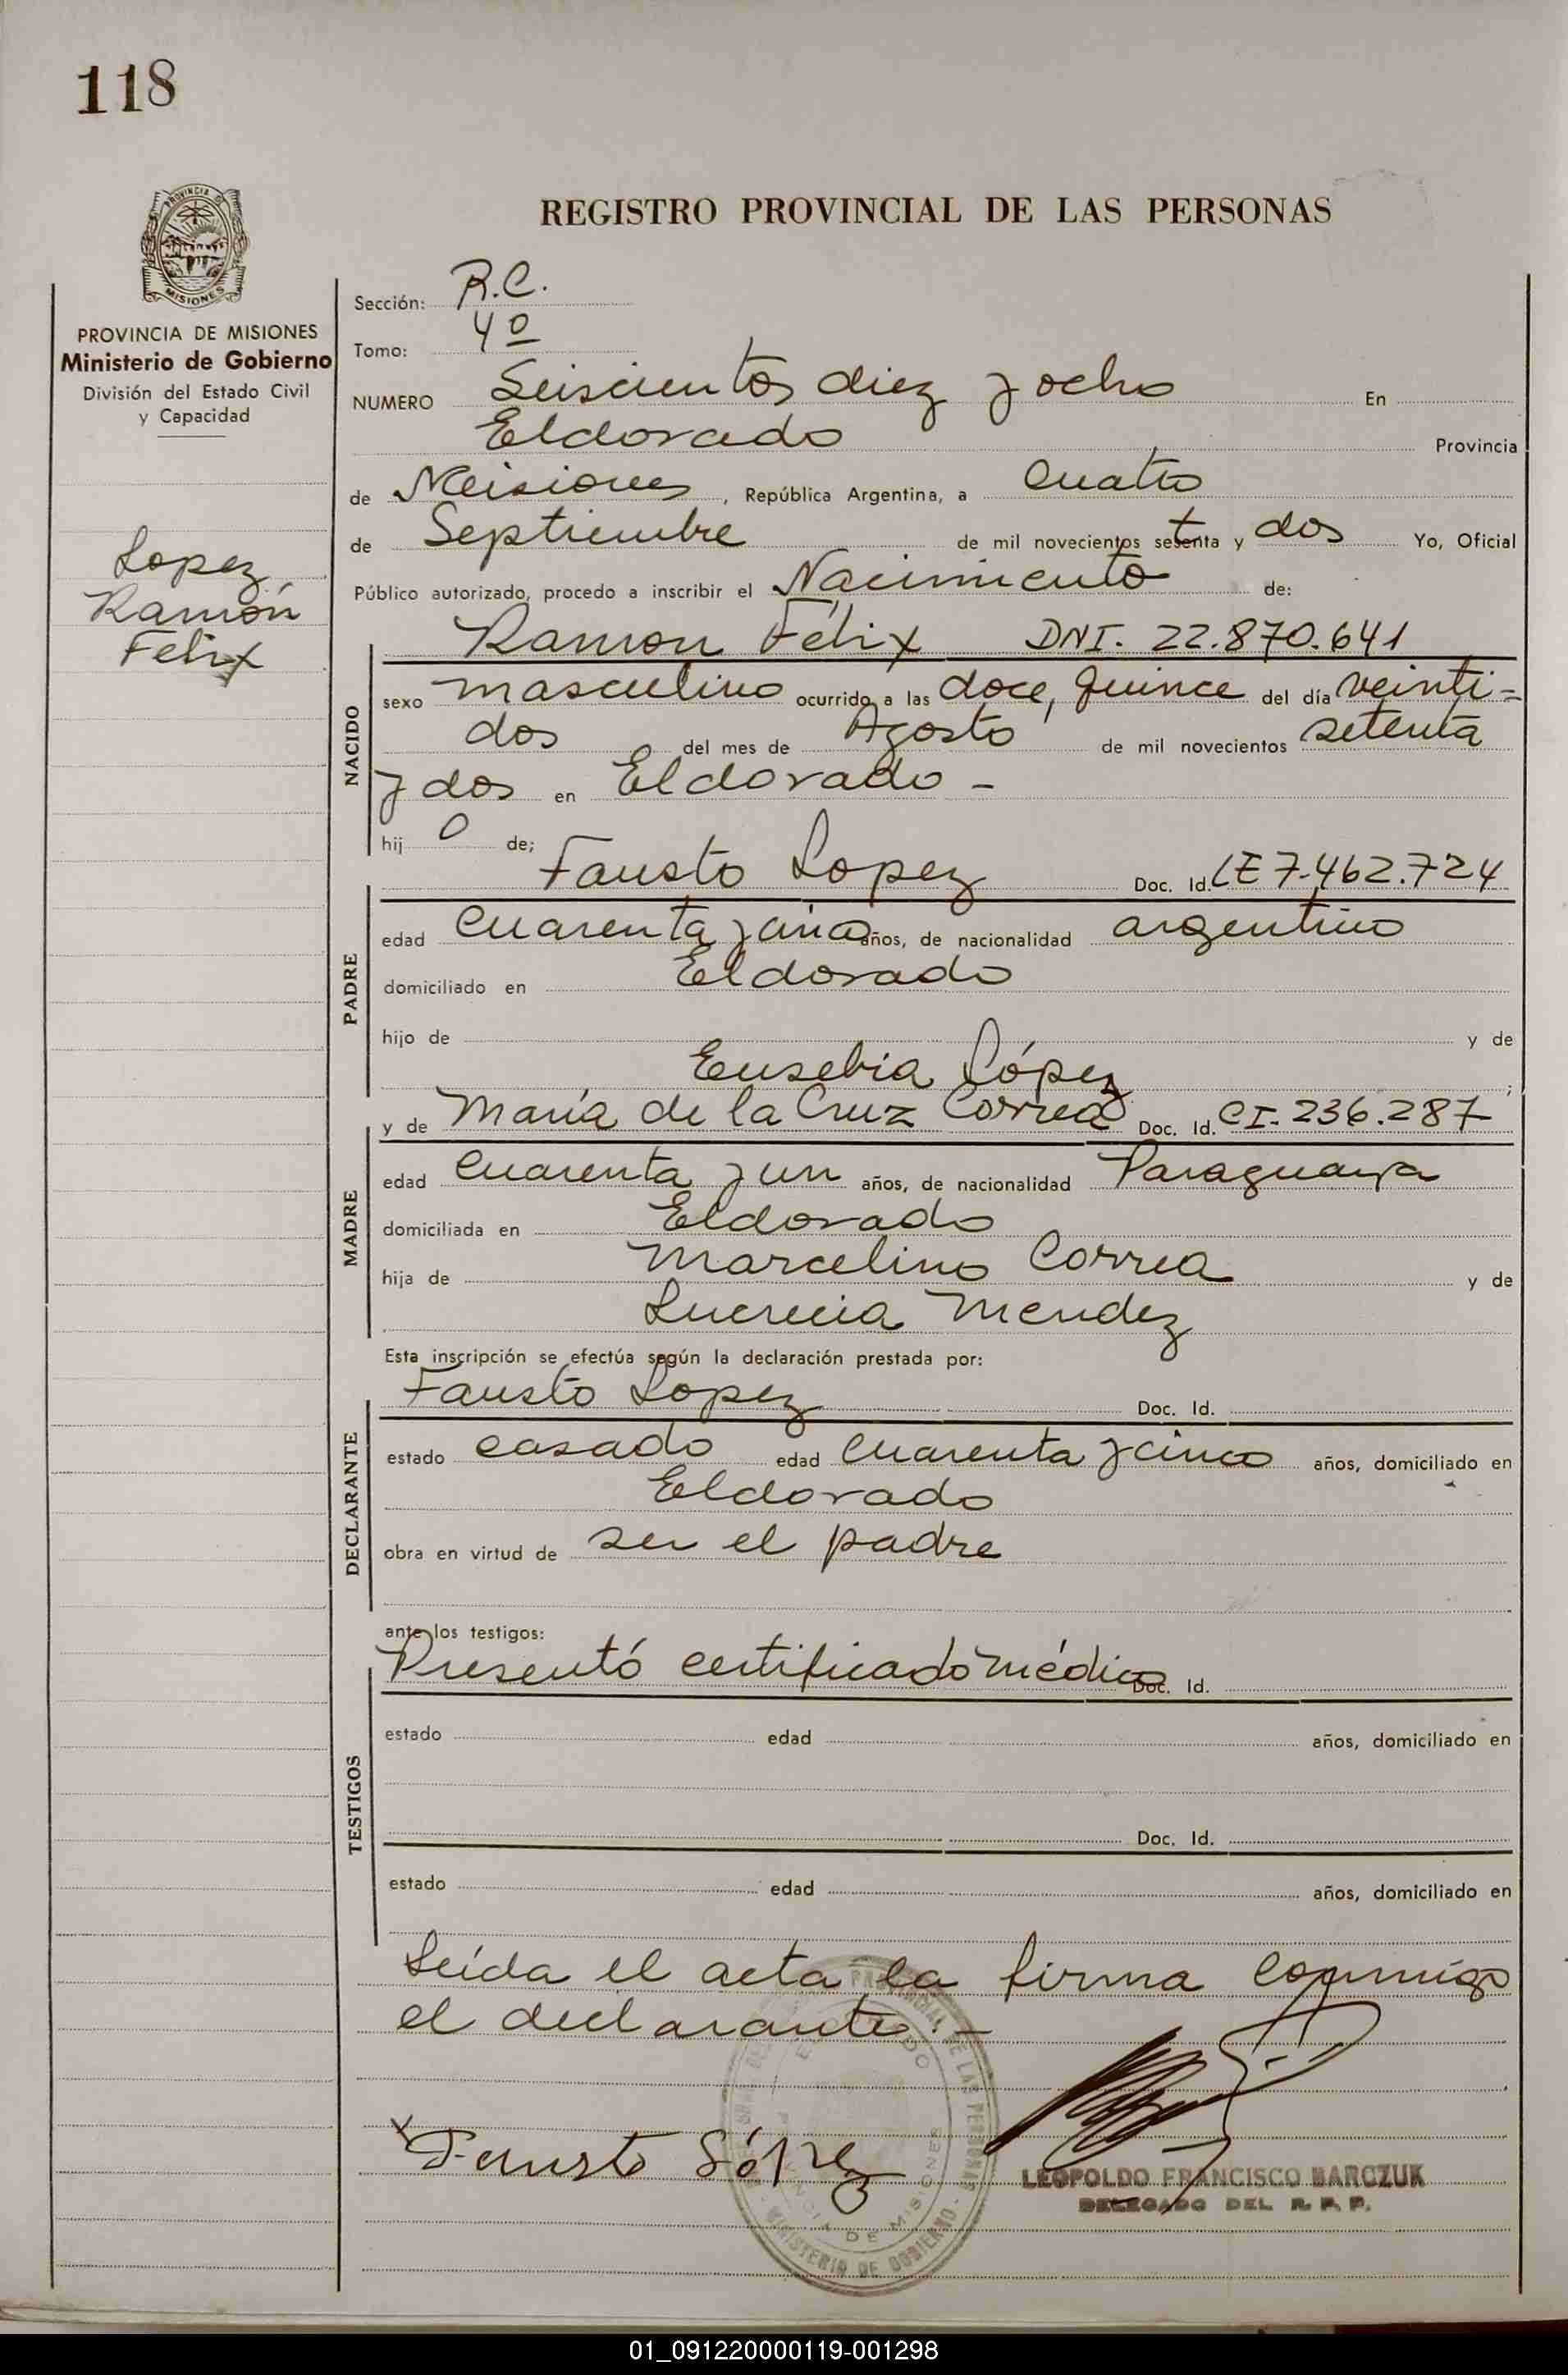 118
PROVINCIA DE
MISIONES
PROVINCIA DE MISIONES
Ministerio de Gobierno
División del Estado Civil
y Capacidad
Lopez
Ramón
Felix
REGISTRO PROVINCIAL DE LAS PERSONAS
Sección: R.C.
Tomo: 4º
NUMERO Seiscientos diez y ocho En
Eldorado Provincia
de Misiones, República Argentina, a cuatro
de Septiembre de mil novecientos setenta y dos Yo, Oficial
Público autorizado, procedo a inscribir el Nacimiento de:
Ramon Félix DNI. 22.870.641
NACIDO
sexo masculino ocurrido a las doce, quince del día veinti=
dos del mes de Agosto de mil novecientos setenta
y dos en Eldorado -
hij o de;
Fausto Lopez Doc. Id. LE 7.462.724
PADRE
edad cuarenta y cinco años, de nacionalidad argentino
domiciliado en Eldorado
hijo de y de
Eusebia López;
y de María de la Cruz Correa Doc. Id. CI. 236.287
MADRE
edad cuarenta y un años, de nacionalidad Paraguaya
domiciliada en Eldorado
hija de Marcelino Correa y de
Lucrecia Mendez
Esta inscripción se efectúa según la declaración prestada por:
Fausto Lopez Doc. Id.
DECLARANTE
estado casado edad cuarenta y cinco años, domiciliado en
Eldorado
obra en virtud de ser el padre
ante los testigos:
Presentó certificado médico Doc. Id.
TESTIGOS
estado edad años, domiciliado en
Doc. Id.
estado edad años, domiciliado en
Leída el acta la firma conmigo
el declarante.-
Fausto López
PROVINCIAL DE LAS PERSONAS
PROVINCIA DE MISIONES
MINISTERIO DE GOBIERNO
LEOPOLDO FRANCISCO BARCZUK
DELEGADO DEL R. P. P.
01_091220000119-001298